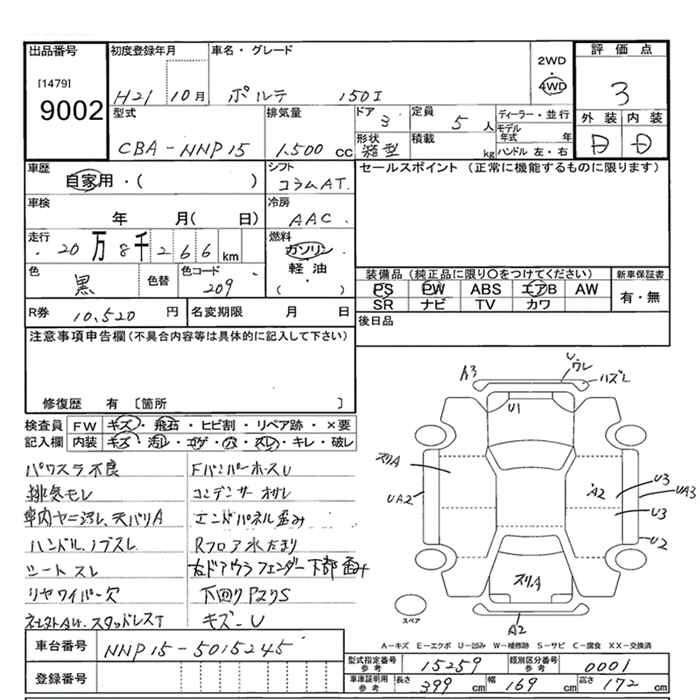 出品番号
[1479]
9002
初度登録年月
H21 10月
車名・グレード
ポルテ 150I
2WD
4WD
評価点
3
外装 内装
D D
型式
CBA-NNP15
排気量
1,500 cc
ドア
3
定員
5 人
ディーラー・並行
モデル年式 年
ハンドル 左・右
形状
箱型
積載
kg
車歴
自家用・( )
シフト
コラムAT.
セールスポイント (正常に機能するものに限ります)
車検
年 月( 日)
冷房
AAC
走行
20万8千266km
燃料
ガソリン
軽油
( )
色
黒
色替
色コード
209
装備品 (純正品に限り○をつけてください)
PS PW ABS エアB AW
SR ナビ TV カワ
新車保証書
有・無
R券
10,520 円
名変期限 月 日
後日品
注意事項申告欄(不具合内容等は具体的に記入して下さい)
修復歴 有 〔箇所 〕
検査員
記入欄
FW キズ・飛石・ヒビ割・リペア跡・×要
内装 キズ・汚レ・コゲ・穴・スレ・キレ・破レ
パワスラ不良
排気モレ
車内ヤニ汚レ、天バリA
ハンドル、ノブスレ
シートスレ
リヤワイパー欠
スタッドレスT
FバンパーホースU
コンデンサーオサレ
エンドパネル歪み
Rフロア水たまり
右ドアウラフェンダー下部歪み
下回りPスリS
キズ-U
A3
U
ウレ
ハズレ
U1
スリA
UA2
A2
U3
UA3
U3
U2
スリA
A2
スペア
A-キズ E-エクボ U-凹み W-補修跡 S-サビ C-腐食 XX-交換済
車台番号
NNP15-5015245
登録番号
型式指定番号
参考
15259
類別区分番号
参考
0001
車庫証明用
参考
長さ 399 cm
幅 169 cm
高さ 172 cm